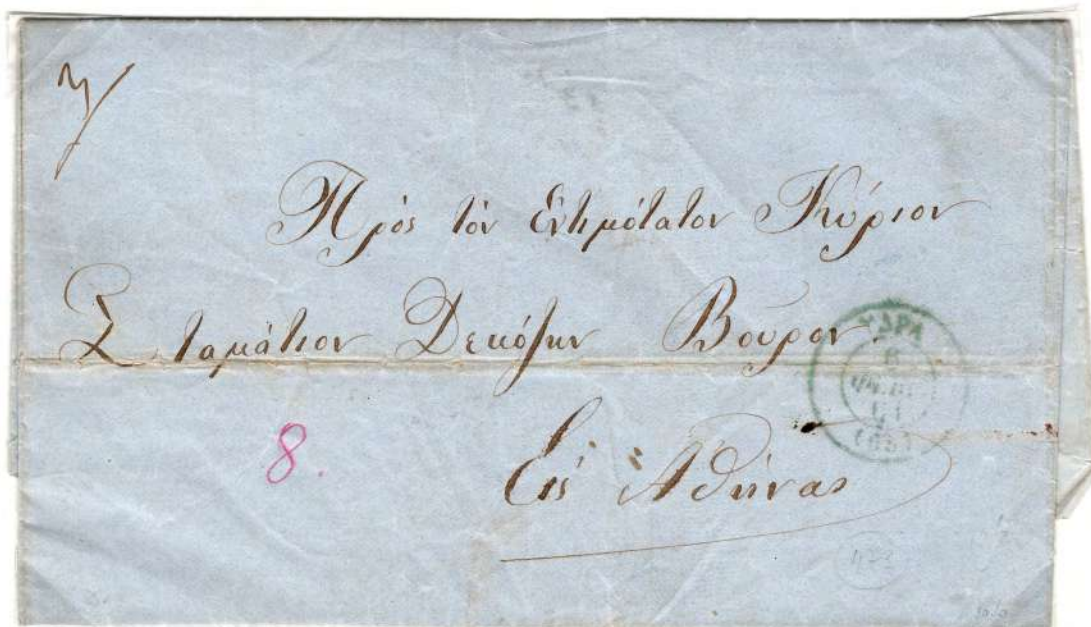 Πρὸς τὸν Ἐντιμότατον Κύριον
Σταμάτιον Δεκόζην Βοῦρον
ΥΔΡΑ
6
ΦΕΒΡ
61
(65)
8.
Εἰς Ἀθήνας